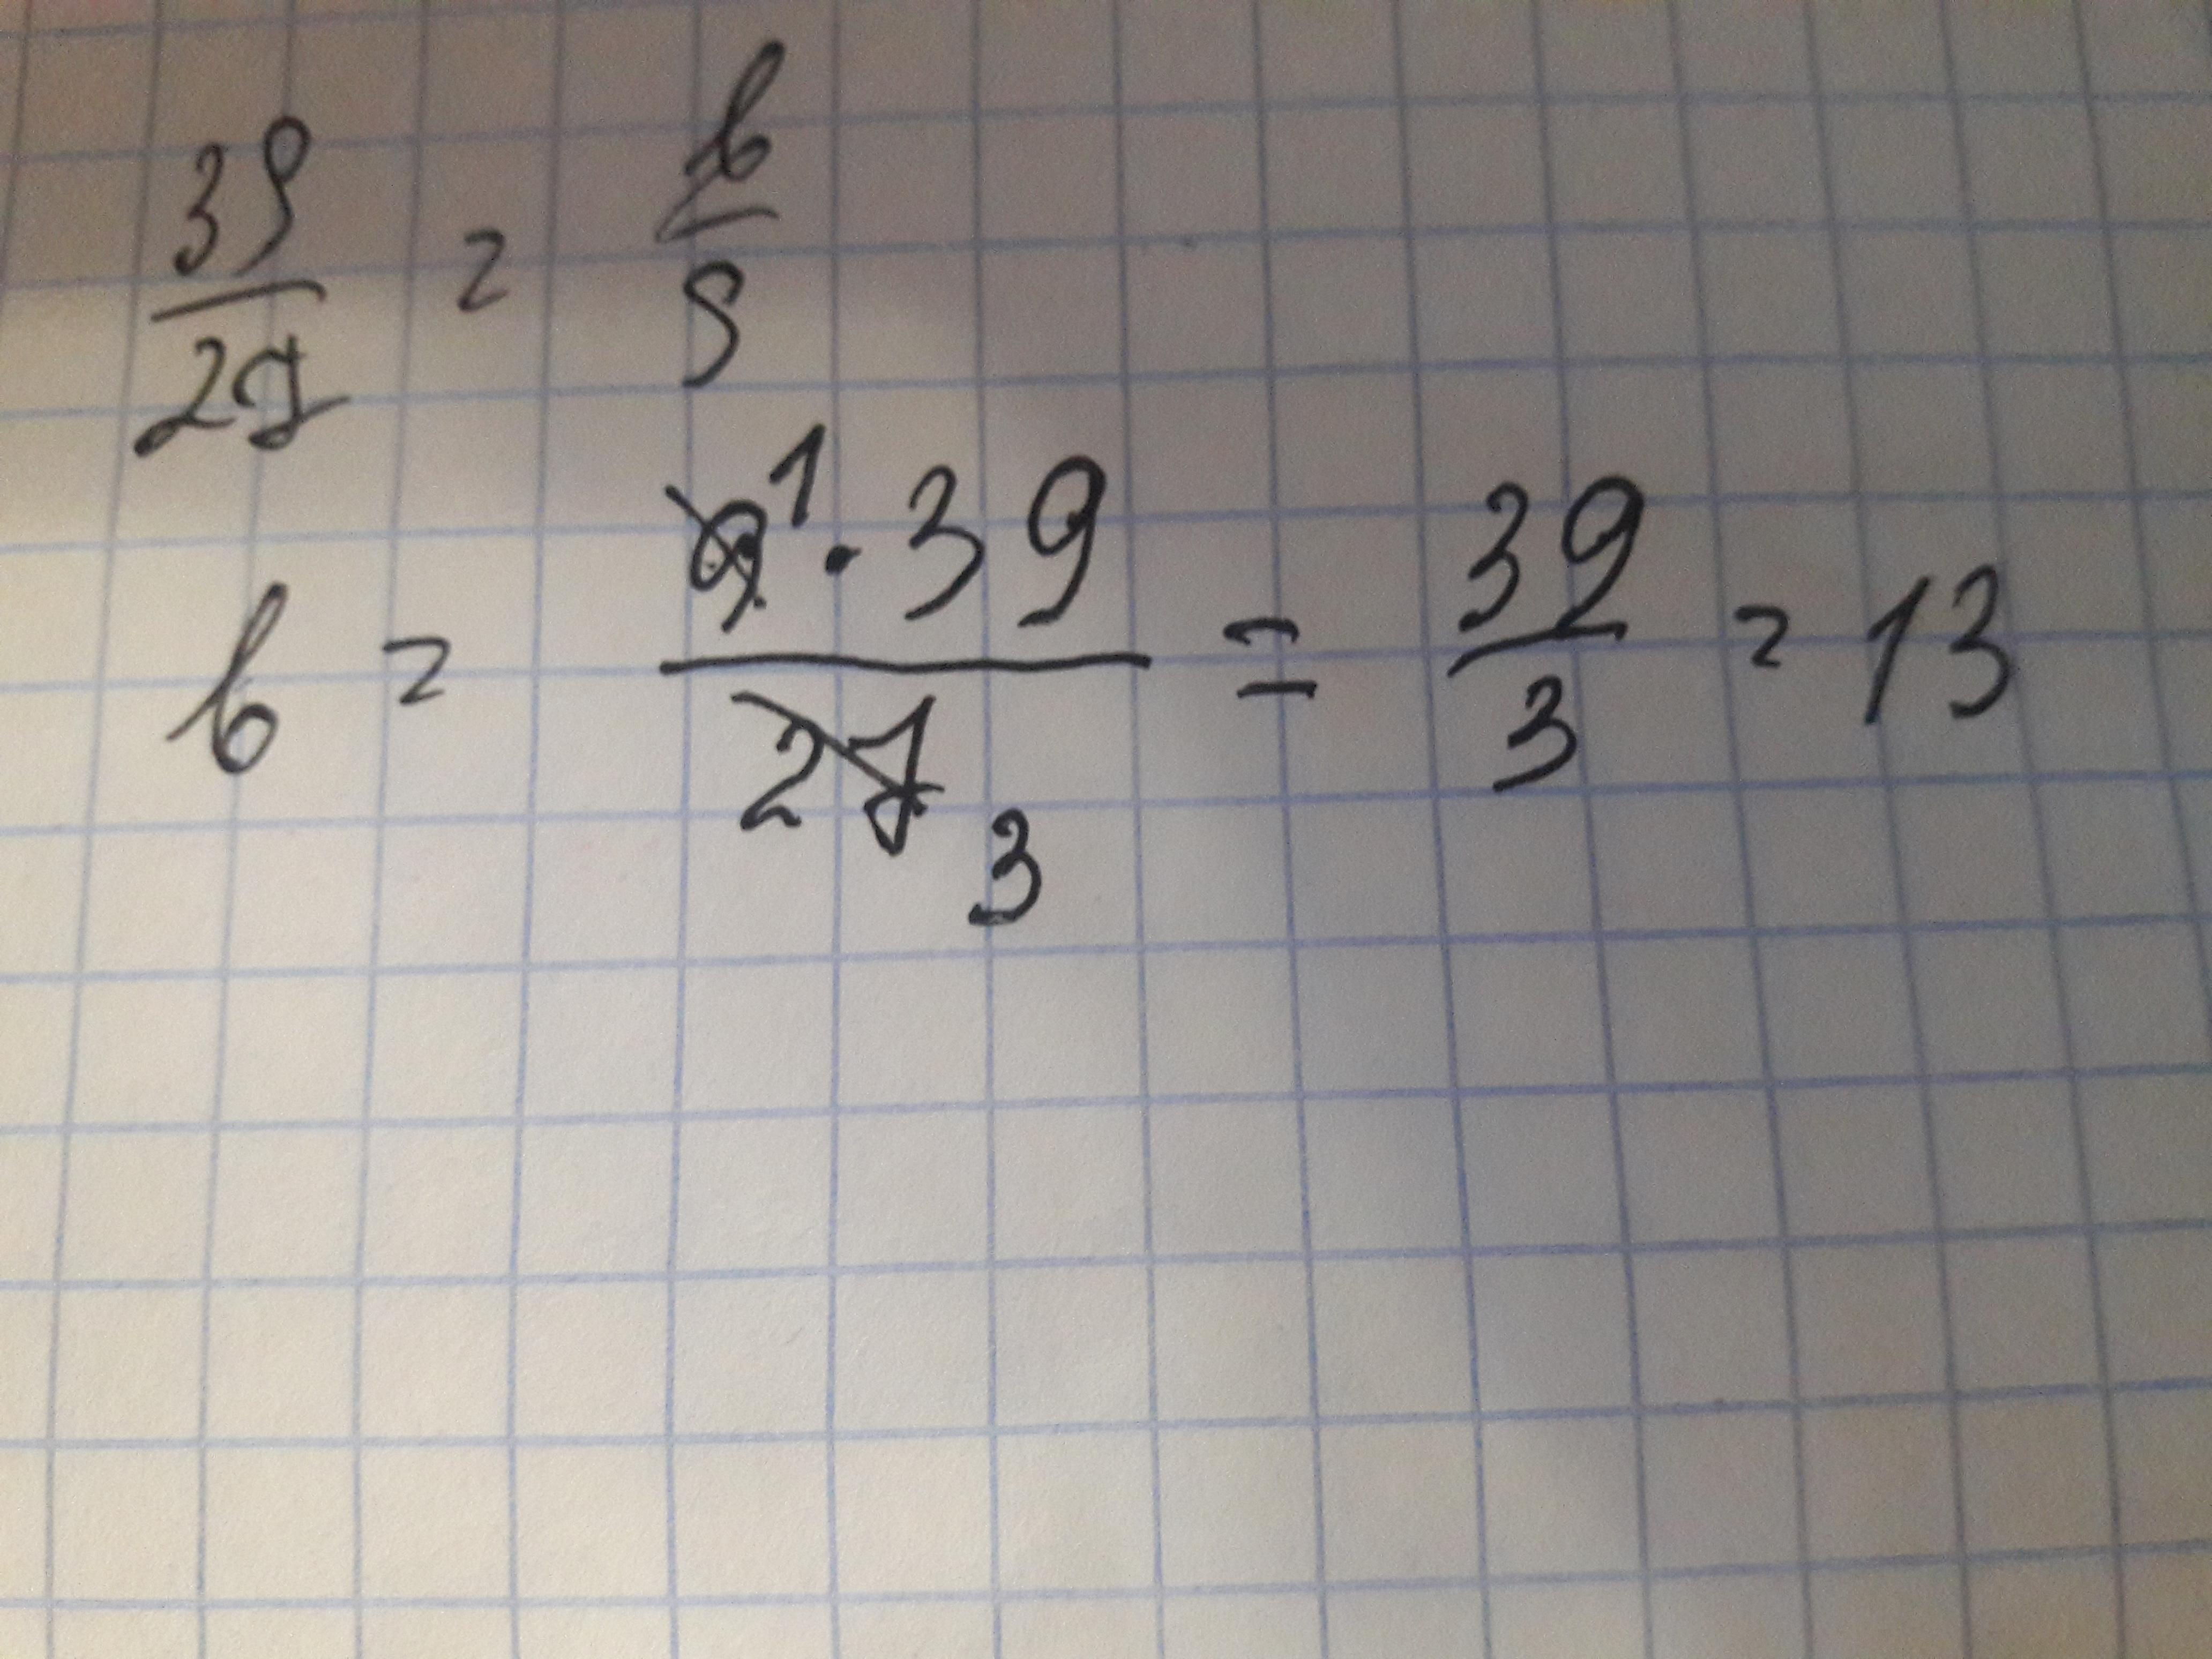 39/27 = b/9
b = 9¹·39/27₃ = 39/3 = 13